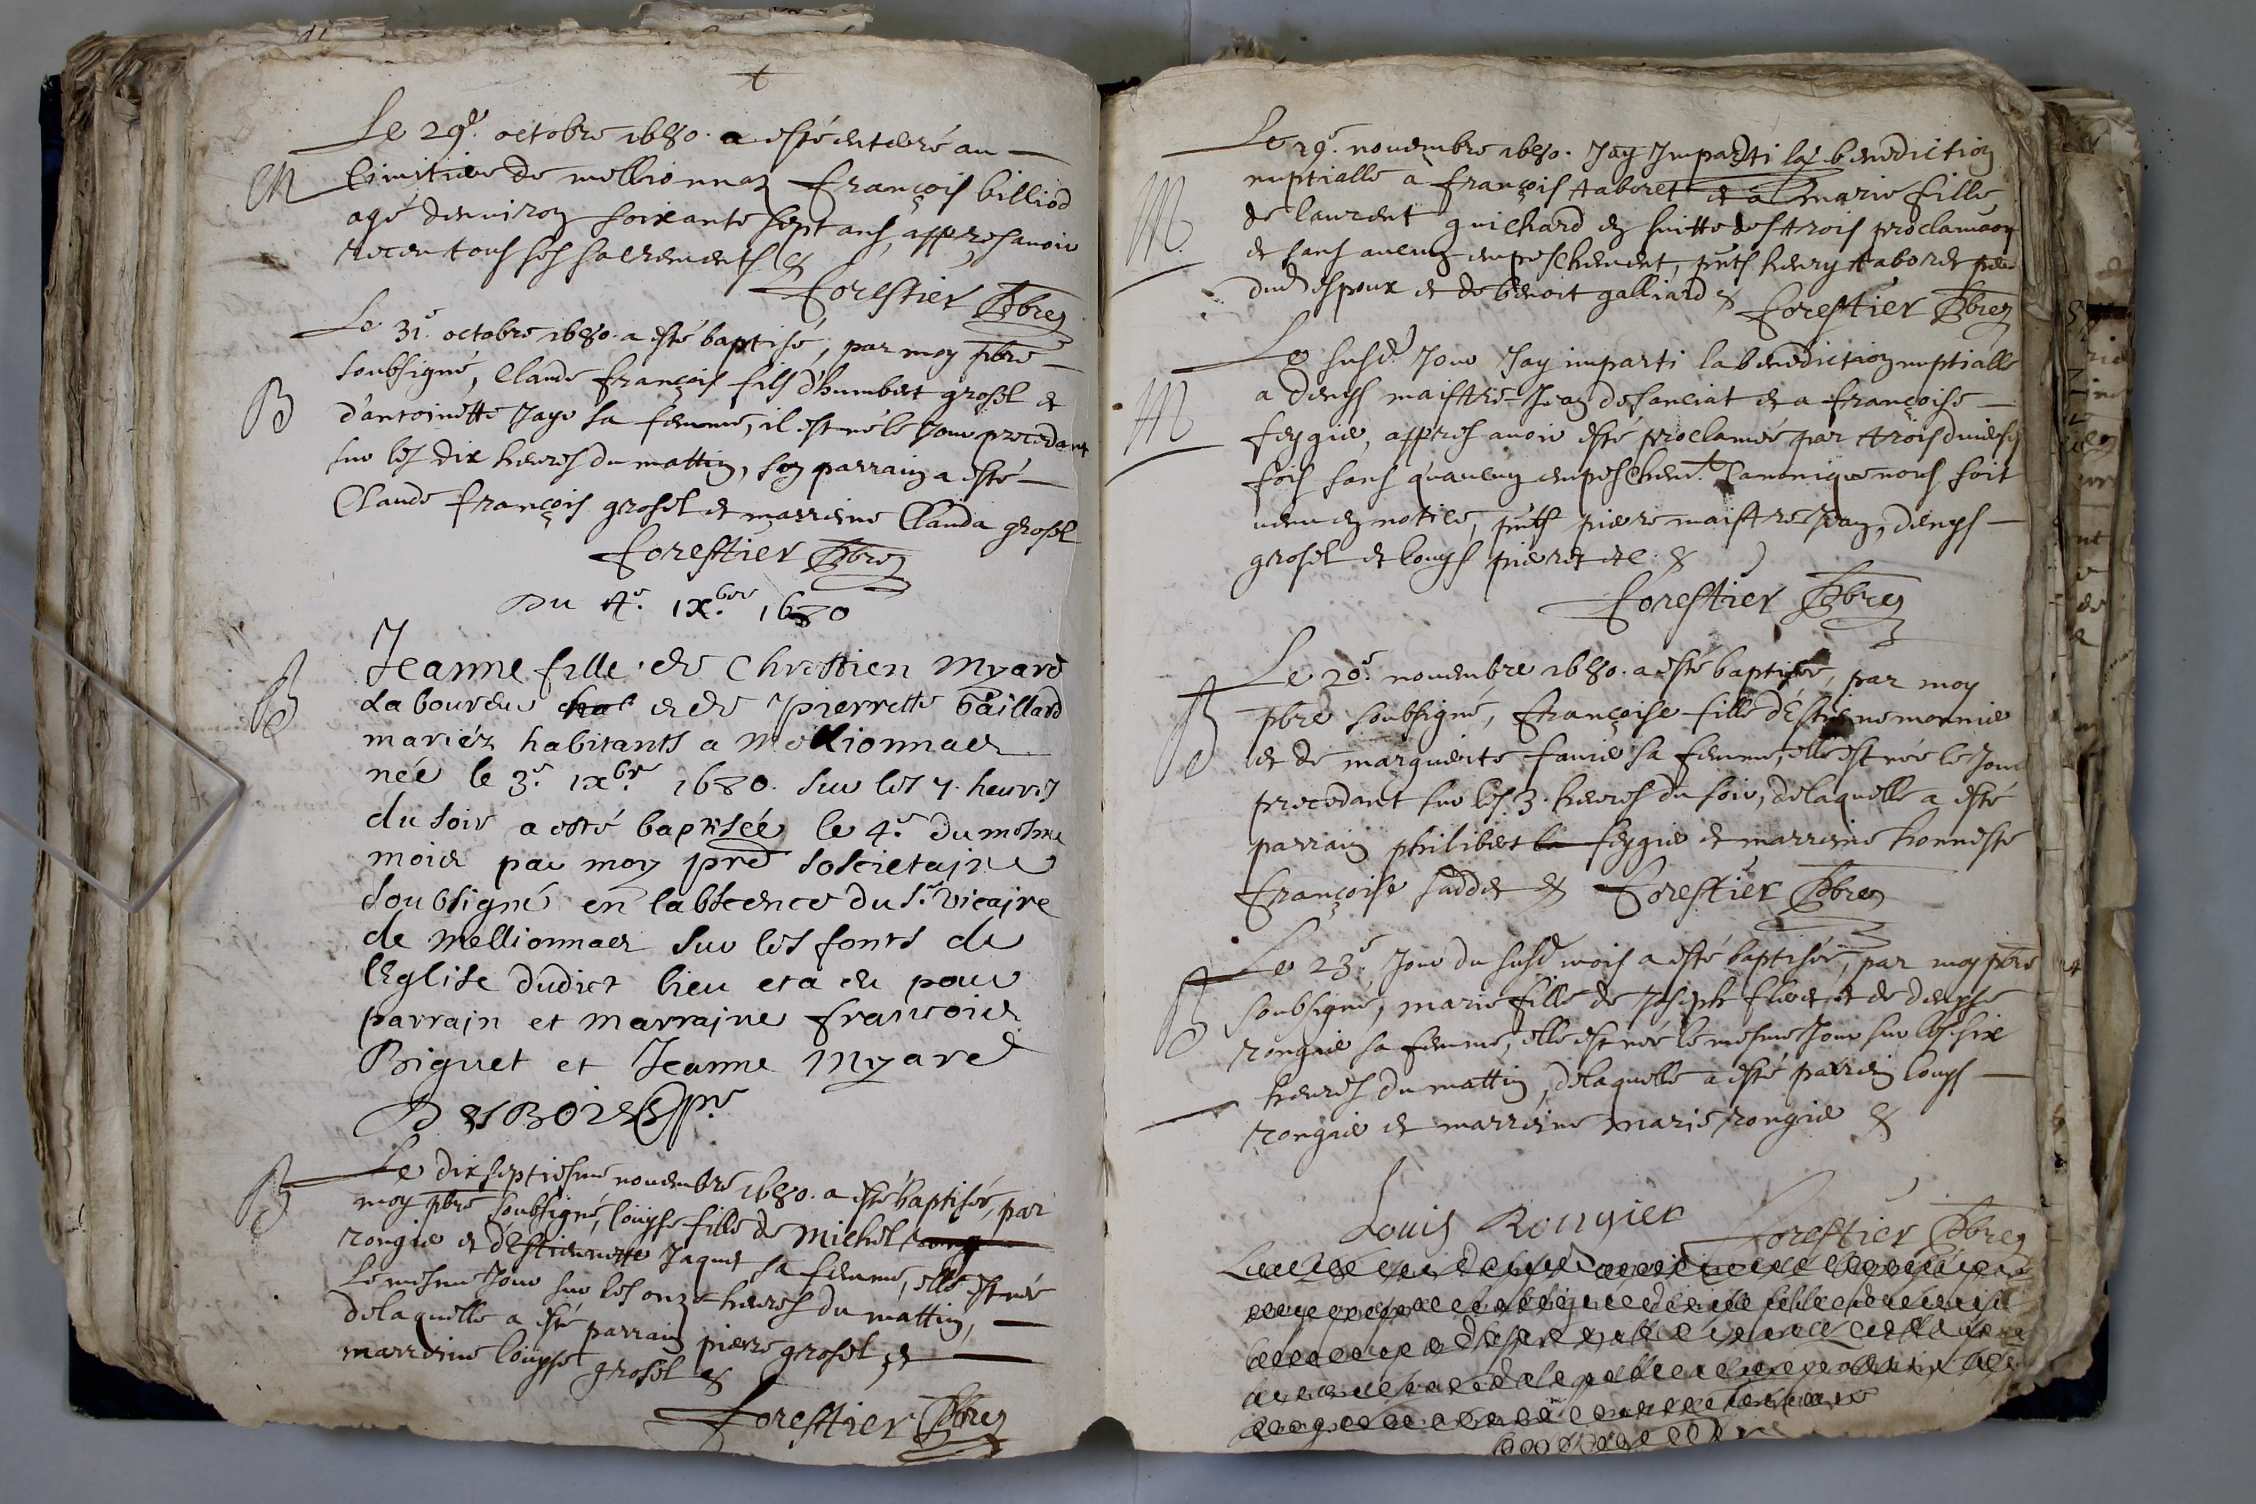 Le 29e. octobre 1680. a esté enterré au
M
cimitiere de mellionnaz François billiod
agé denviron soixante sept ans, appres avoir
receu tous ses sacrements &
Forestier Pbre
Le 31e. octobre 1680. a esté baptisé, par moy pbre
soubsigné, Claude François fils d'humbert grosel et
B
d'antoinette Jaye sa femme, il est né le Jour precedant
sur les dix heures du mattin, son parrain a esté
Claude François grosel et marreine Clauda grosel
Forestier Pbre
Du 4e. IXbre 1680
Jeanne fille de Chrestien Myard
B
Laboureur et de Pierrette Gaillard
mariéz habitants a Mellionnaez
née le 3e. IXbre 1680. sur les 7. heures
du soir a esté baptisée le 4e. du mesme
mois par moy pre societaire
soubsigné en labscence du Sr. vicaire
de Mellionnaez sur les fonts de
l'Eglise dudict lieu et a eu pour
parrain et marraine françois
Biguet et Jeanne Myard
DesBois pre
Le dix septiesme novembre 1680. a esté baptisée, par
B
moy pbre soubsigné, louyse fille de Michel
rongie et d'Estiennette Jaquet sa femme, elle est née
le mesme Jour sur les onze heures du mattin,
delaquelle a esté parrain pierre grosel, et
marreine louyse grosel &
Forestier Pbre
Le 19e. novembre 1680. Jay Imparti la benediction
nuptialle a françois taboret et a marie fille
M
de laurent guichard en suitte des trois proclamaons
et sans aucun empeschement, pnts henry taboret pere
dud espoux et de benoit galliard & Forestier Pbre
Le susd. Jour Jay imparti la benediction nuptialle
M
a denys maistre Jean desanciat et a françoise
feygie, appres avoir esté proclamée par trois diverses
fois sans qu'aucun empeschemt. Canonique nous soit
venu en notice, pnts pierre maistre Jean, denys
grosel et louys pieret etc. &
Forestier Pbre
Le 20e. novembre 1680. a esté baptisée, par moy
B
pbre soubsigné, françoise fille d'Estienne monnie
et de marguerite favie sa femme, elle est née le Jour
precedant sur les 3. heures du soir, delaquelle a esté
parrain philibert feygie et marreine honneste
Françoise saddet & Forestier Pbre
Le 23e. Jour du susd mois a esté baptisée, par moy pbre
B
soubsigné, marie fille de Joseph et de denyse
rongie sa femme, elle est née le mesme Jour sur les six
heures du mattin, delaquelle a esté parrein louys
rongie et marreine marie rongie &
Louis Rongier
Forestier Pbre